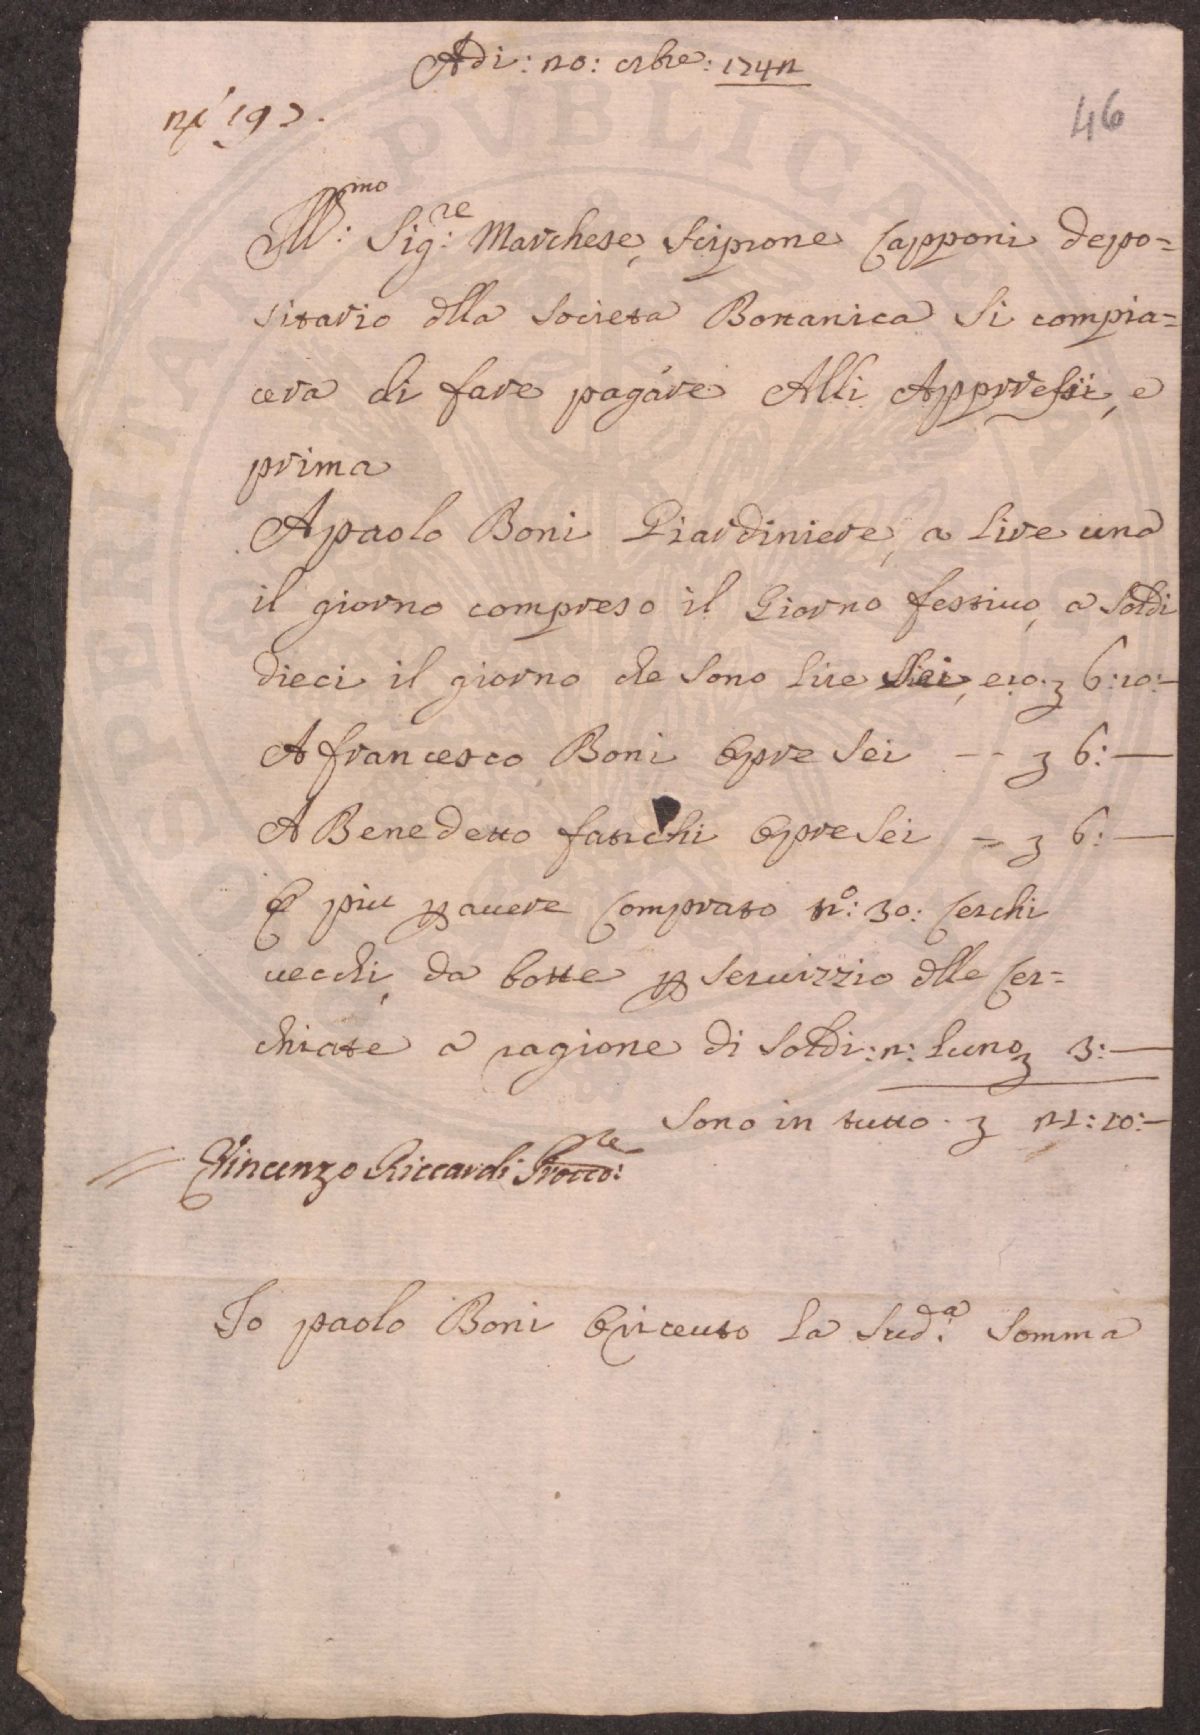 Adi: 20: xbre: 1742
nº 197.
46
Ill:mo Sig:re Marchese, Scipione Capponi depo=
sitario dlla Societa Bottanica Si compia=
cera di fare pagare Alli Appressi, e
prima
A paolo Boni Giardiniere, a lire una
il giorno compreso il Giorno festiuo, a Soldi
dieci il giorno che Sono lire Sei, e 10: 6:10:—
A francesco Boni Opre Sei -- 6:—
A Benedetto fanchi Opre Sei - 6:—
E piu p auere Comprato nº: 30: Cerchi
uecchi, da botte p Seruizzio dlle Cer=
chiate a ragione di Soldi: 2: luno 3:—
Sono in tutto. 21:10:—
Vincenzo Riccardi Procco:re
Io paolo Boni O riceuto la Sud:a Somma
PUBLICAE